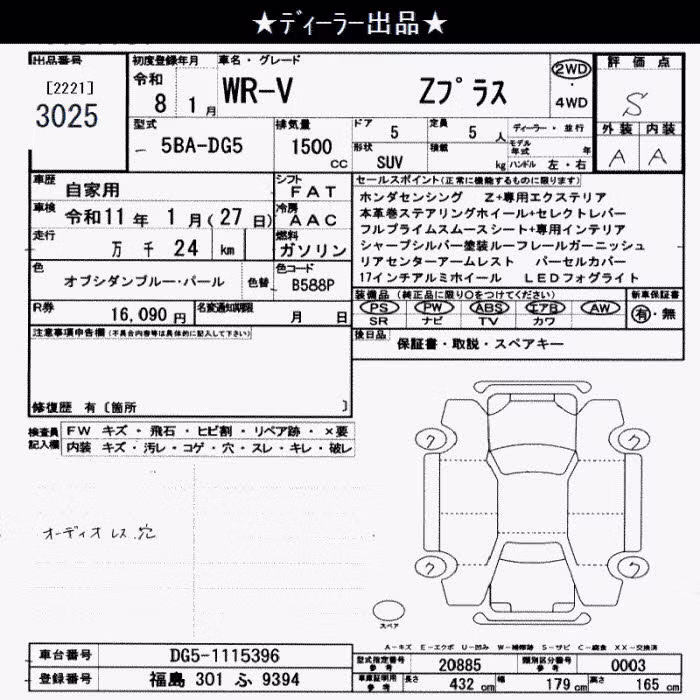 ★ディーラー出品★
出品番号
[2221]
3025
初度登録年月
令和
8 1 月
車名・グレード
WR-V Zプラス
2WD
・
4WD
評価点
S
外装 内装
A A
型式
5BA-DG5
排気量
1500
CC
ドア
5
定員
5 人
形状
SUV
積載
kg
ディーラー・並行
モデル年式 年
ハンドル 左・右
車歴 自家用
シフト
FAT
車検 令和11年 1月(27日)
冷房
AAC
走行 万 千 24 km
燃料
ガソリン
色
オブシダンブルー・パール
色替
色コード
B588P
R券 16,090 円
名変通知期限
月 日
セールスポイント(正常に機能するものに限ります)
ホンダセンシング Z+専用エクステリア
本革巻ステアリングホイール+セレクトレバー
フルプライムスムースシート+専用インテリア
シャープシルバー塗装ルーフレールガーニッシュ
リアセンターアームレスト パーセルカバー
17インチアルミホイール LEDフォグライト
装備品(純正品に限り○をつけてください)
PS PW ABS エアB AW
SR ナビ TV カワ
新車保証書
有・無
後日品
保証書・取説・スペアキー
注意事項申告欄(不具合内容等は具体的に記入して下さい)
修復歴 有〔箇所 〕
検査員
記入欄
FW キズ・飛石・ヒビ割・リペア跡・×要
内装 キズ・汚レ・コゲ・穴・スレ・キレ・破レ
オーディオレス穴
ク ク
ク ク
スペア
A-キズ E-エクボ U-凹み W-補修跡 S-サビ C-腐食 XX-交換済
車台番号 DG5-1115396
登録番号 福島 301 ふ 9394
型式指定番号
参考
20885
類別区分番号
参考
0003
車庫証明用
参考
長さ 432 cm 幅 179 cm 高さ 165 cm